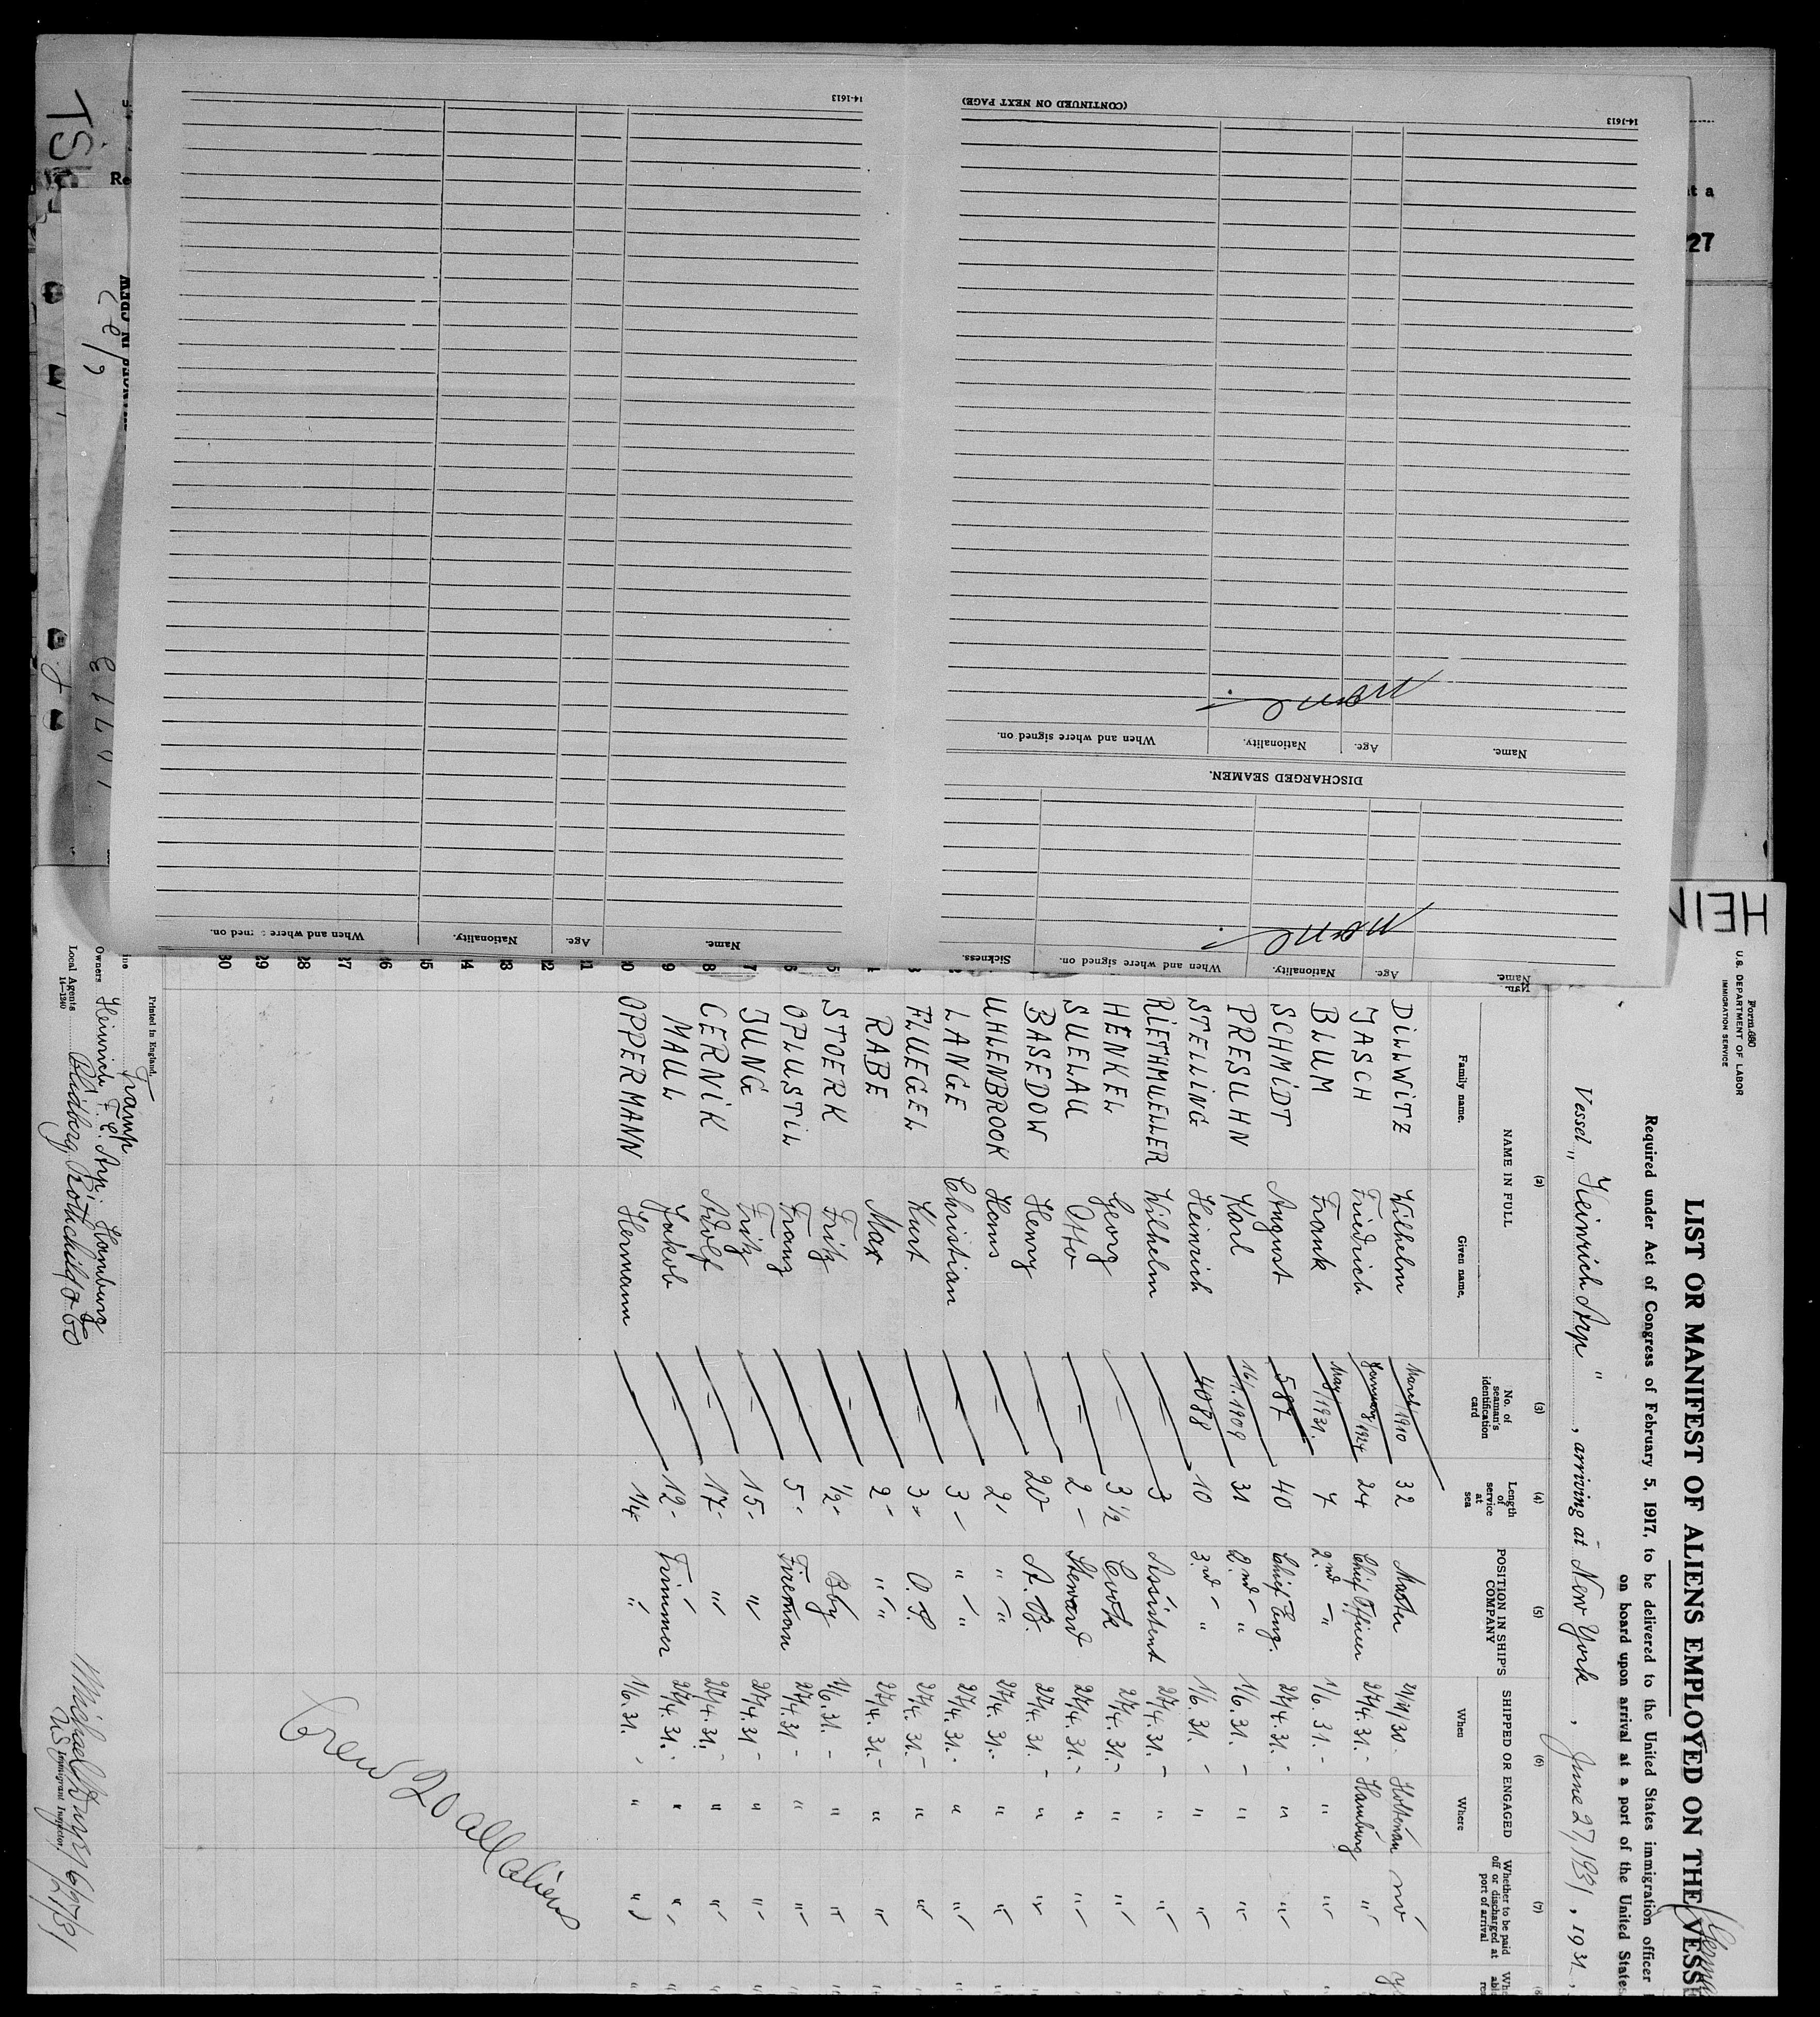 HEIN
Form 680
U.S. DEPARTMENT OF LABOR
IMMIGRATION SERVICE
LIST OR MANIFEST OF ALIENS EMPLOYED ON THE VESSE
Required under Act of Congress of February 5, 1917, to be delivered to the United States immigration officer
on board upon arrival at a port of the United States
Vessel „ Heinrich Arp " , arriving at New York , June 27, 1931 , 1931 ,
(2) (3) (4) (5) (6) (7) (8)
NAME IN FULL No. of seaman's identification card Length of service at sea POSITION IN SHIP'S COMPANY SHIPPED OR ENGAGED Whether to be paid off or discharged at port of arrival
Family name. Given name. When Where
DILLWITZ Wilhelm March/1910 32 Master Holtenau no
JASCH Friedrich January/1924 24 Chief Officer 27/4.31. - Hamburg "
BLUM Frank May/1931. 7 2.nd - " 1/6. 31. - " "
SCHMIDT August 587 40 Chief Eng. 27/4.31. - " "
PRESUHN Karl 16/1.1909 31 2.nd - " 1/6.31. - " "
STELLING Heinrich 4088 10 3.rd - " 1/6. 31. - " "
RIETHMUELLER Wilhelm - 3 Assistent 27/4.31. - " "
HENKEL Georg - 3 1/2 Cook 27/4.31. - " "
SUELAU Otto - 2 - Steward 27/4.31. - " "
BASEDOW Henry - 20 A.B. 27/4.31. - " "
UHLENBROOK Hans - 2 - " " 27/4.31. - " "
LANGE Christian - 3 - " " 27/4.31. - " "
FLUEGEL Kurt - 3 - O.S. 27/4.31. - " "
RABE Max - 2 - " " 27/4.31. - " "
STOERK Fritz - 1/2 - Boy 1/6.31. - " "
OPLUSTIL Franz - 5 - Fireman 27/4.31 - " "
JUNG Fritz - 15 - " 27/4.31 - " "
CERNIK Adolf - 17 - " 27/4.31. - " "
MAUL Jakob - 12 - Trimmer 27/4.31. - " "
OPPERMANN Hermann 1/4 " 1/6.31. - " "
Crew 20 all aliens
Printed in England.
Tramp
Owners Heinrich F. C. Arp, Hamburg
Local Agents Blidberg Rothchild & Co
14-1240
US Immigrant Inspector
6/27/31
Name. Age. Nationality. When and where signed on. Sickness.
None
DISCHARGED SEAMEN.
Name. Age. Nationality. When and where signed on.
None
14-1613
(CONTINUED ON NEXT PAGE)
Name. Age. Nationality. When and where signed on.
14-1613
27